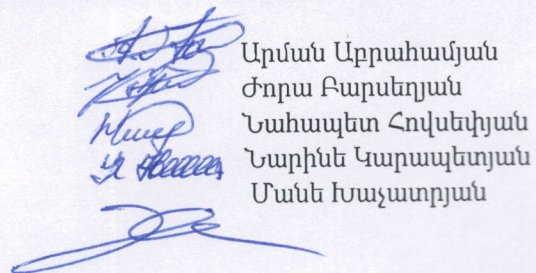 Արման Աբրահամյան
Ժորա Բարսեղյան
Նահապետ Հովսեփյան
Նարինե Կարապետյան
Մանե Խաչատրյան